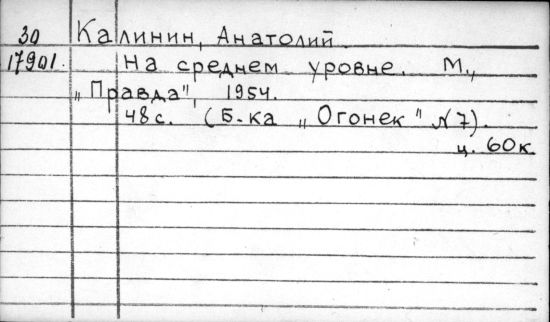 30 Калинин, Анатолий.
17901. На среднем уровне. М.,
„Правда", 1954.
48 с. (Б-ка „Огонек" N 7).
ц. 60к.